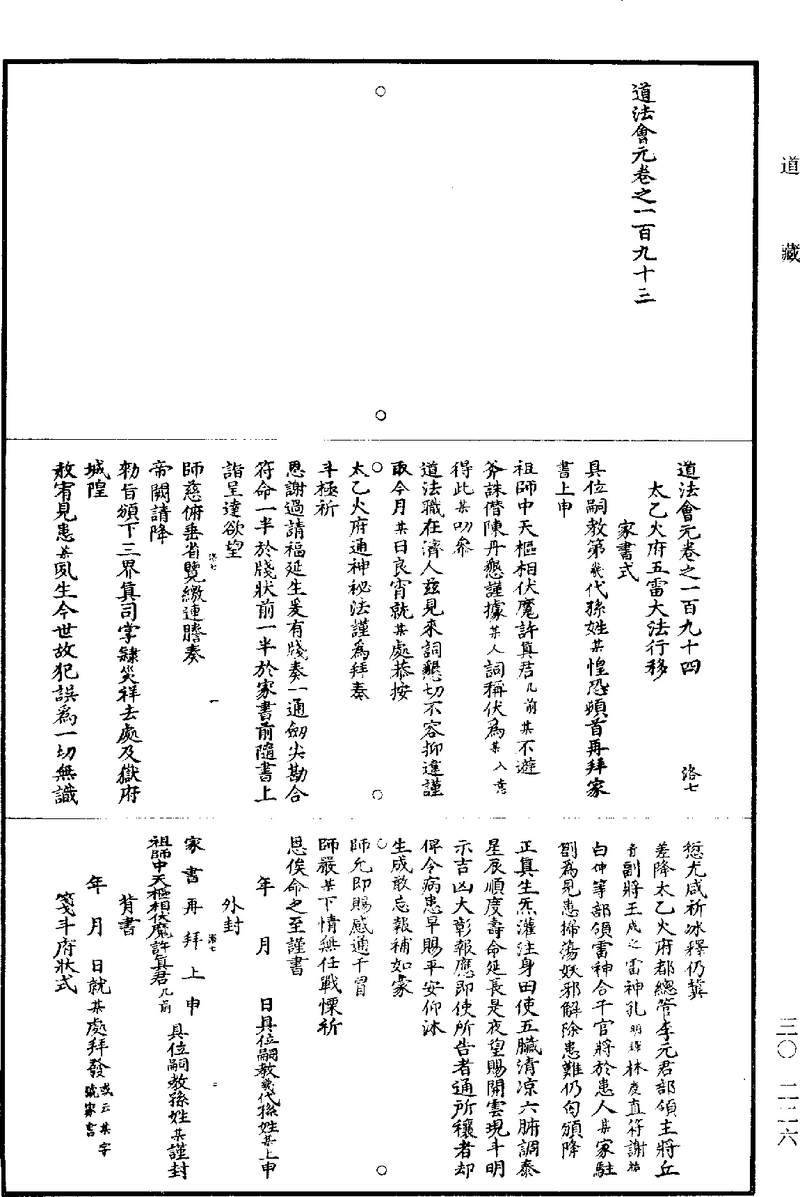 道藏
道法會元卷之一百九十三
道法會元卷之一百九十四 洛七
太乙火府五雷大法行移
家書式
具位嗣教第幾代孫姓某惶恐頓首再拜家
書上申
祖師中天樞相伏魔許真君几前某不避
斧誅僭陳丹懇謹據某人詞稱伏為某入意
得此某叨參
道法職在濟人茲見來詞懇切不容抑違謹
取今月某日良宵就某處恭按
太乙火府通神秘法謹為拜奏
斗極祈
恩謝過請福延生爰有牋奏一通劒尖勘合
符命一半於牋狀前一半於家書前隨書上
詣呈達欲望
師慈俯垂省覽繳連謄奏
洛七 一
帝闕請降
勑旨頒下三界真司掌隸災祥去處及嶽府
城隍
赦宥見患某夙生今世故犯誤為一切無識
愆尤咸祈冰釋仍冀
差降太乙火府都總管李元君部領主將丘
青副將王成之雷神乳明輝林度直符謝祐
白伸等部領雷神合干官將於患人某家駐
劄為見患掃蕩妖邪解除患難仍匄頒降
正真生炁灌注身田使五臟清凉六腑調泰
星辰順度壽命延長是夜望賜開雲現斗明
示吉凶大彰報應即使所告者通所禳者却
俾令病患早賜平安仰沐
生成敢忘報補如蒙
師允即賜感通干冒
師嚴某下情無任戰慄祈
恩俟命之至謹書
年 月 日具位嗣教幾代孫姓某上申
外封
洛七 二
家書再拜上申
祖師中天樞相伏魔許真君几前 具位嗣教孫姓某謹封
背書
年 月 日就某處拜發或云某字號家書
箋斗府狀式
三〇 二二六